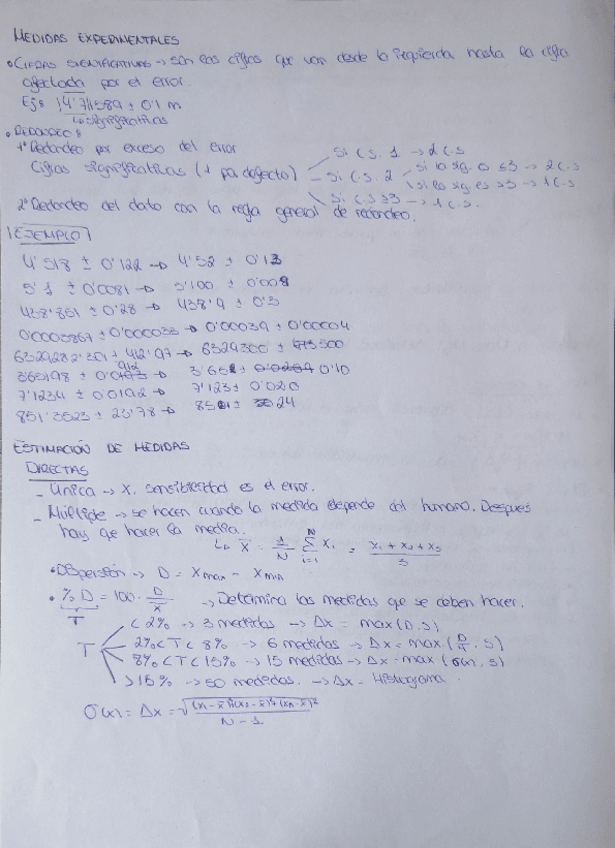 MEDIDAS EXPERIMENTALES
• CIFRAS SIGNIFICATIVAS → son las cifras que van desde la izquierda hasta la cifra
afectada por el error.
Ej: 14'711589 ± 0'1 m
↳ significativas
• REDONDEO:
1º Redondeo por exceso del error
Cifras significativas (1 por defecto)
Si C.S. 1 → 2 C.S
Si C.S. 2
si la sig. o ≤3 → 2 C.S
si la sig. es >3 → 1 C.S
Si C.S ≥3 → 1 C.S.
2º Redondeo del dato con la regla general de redondeo.
EJEMPLO
4'518 ± 0'122 → 4'52 ± 0'13
5'1 ± 0'0081 → 5'100 ± 0'009
438'851 ± 0'28 → 438'9 ± 0'3
0'0003867 ± 0'000033 → 0'00039 ± 0'00004
6329282'301 + 412'97 → 6329300 ± 500
3'65198 ± → 3'65 ± 0'10
7'1234 ± 0'0192 → 7'123 ± 0'020
851'3523 ± 23'78 → 851 ± 24
ESTIMACIÓN DE MEDIDAS
DIRECTAS
- Única → X, sensibilidad es el error.
- Múltiple → se hacen cuando la medida depende del humano. Después
hay que hacer la media.
↳ x̄ = 1/N Σ_{i=1}^{N} x_i = (x₁ + x₂ + x₃)/3
• Dispersión → D = Xmax - Xmin
• % D = 100 · D/x̄ → Determina las medidas que se deben hacer.
T
T
< 2% → 3 medidas → Δx = max (D, S)
2% < T < 8% → 6 medidas → Δx = max (D/4, S)
8% < T < 15% → 15 medidas → Δx = max (σ(x), S)
> 15% → 50 medidas. → Δx - Histograma.
σ(x) = Δx = √((x₁ - x̄)²+(x₂ - x̄)²+(xₙ - x̄)²)/(N - 1)